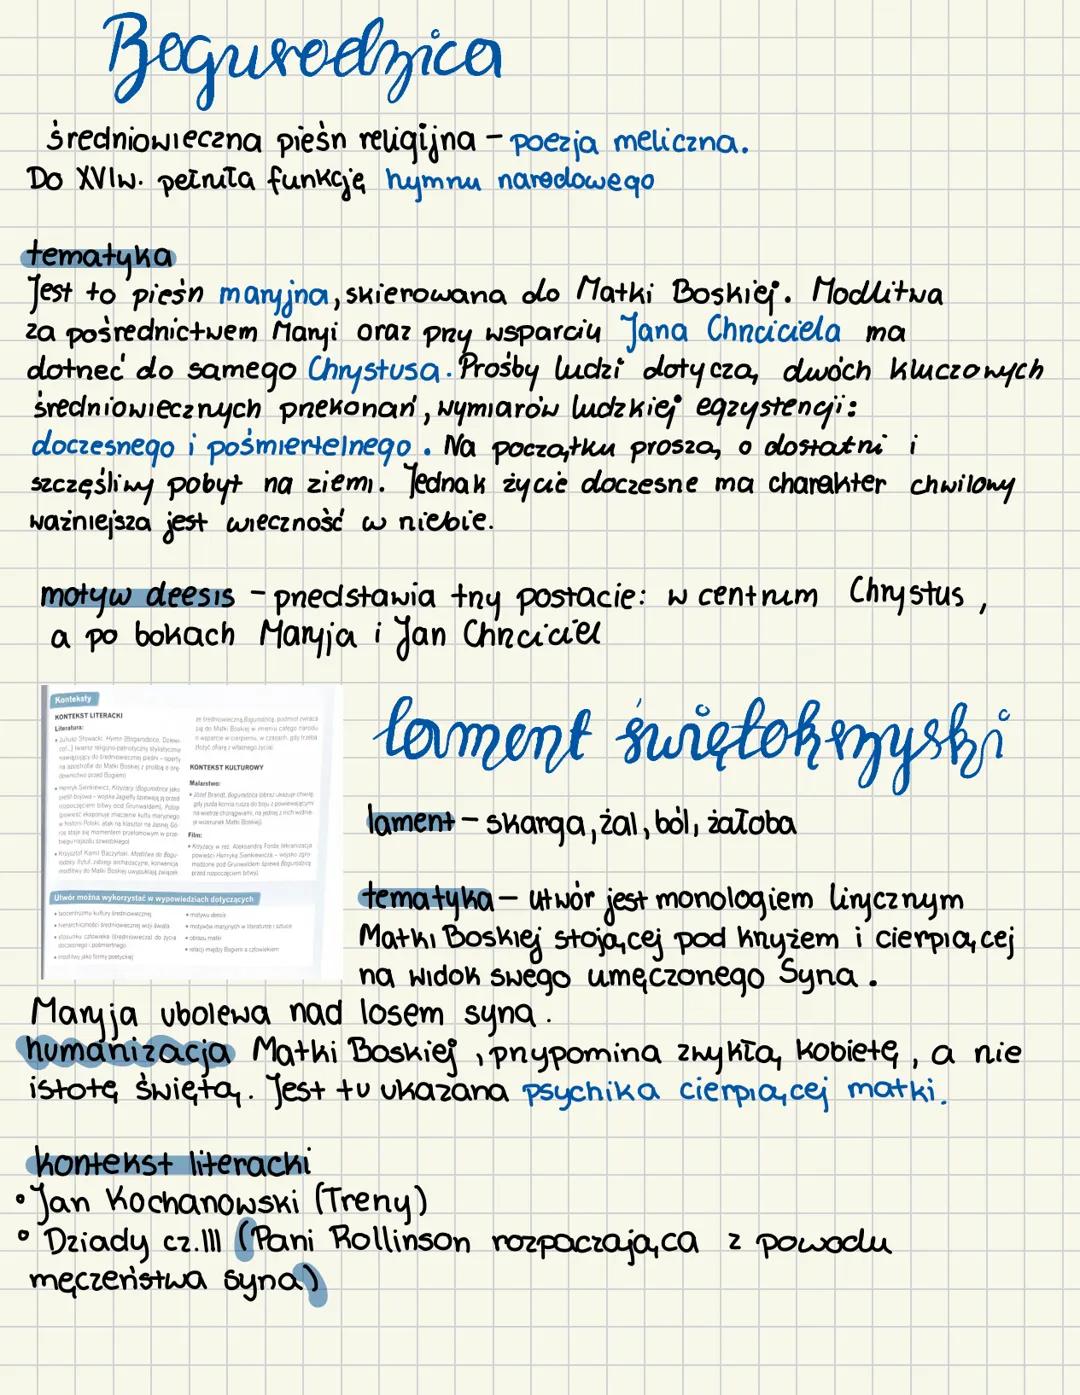 Bogurodzica
średniowieczna pieśń religijna – poezja meliczna.
Do XVI w. pełniła funkcję hymnu narodowego
tematyka
Jest to pieśń maryjna, skierowana do Matki Boskiej. Modlitwa
za pośrednictwem Maryi oraz przy wsparciu Jana Chrzciciela ma
dotrzeć do samego Chrystusa. Prośby ludzi dotyczą dwóch kluczowych
średniowiecznych przekonań, wymiarów ludzkiej egzystencji:
doczesnego i pośmiertelnego. Na początku proszą o dostatni i
szczęśliwy pobyt na ziemi. Jednak życie doczesne ma charakter chwilowy
ważniejsza jest wieczność w niebie.
motyw deesis – przedstawia trzy postacie: w centrum Chrystus,
a po bokach Maryja i Jan Chrzciciel
Konteksty
KONTEKST LITERACKI
Literatura:
KONTEKST KULTUROWY
Malarstwo:
Film:
Utwór można wykorzystać w wypowiedziach dotyczących
• teocentryzmu kultury średniowiecznej
• hierarchiczności średniowiecznej wizji świata
• stosunku człowieka średniowiecza do życia
doczesnego i pośmiertnego
• modlitwy jako formy poetyckiej
• motywu deesis
• motywów maryjnych w literaturze i sztuce
• obrazu matki
• relacji między Bogiem a człowiekiem
lament świętokrzyski
lament – skarga, żal, ból, żałoba
tematyka – utwór jest monologiem lirycznym
Matki Boskiej stojącej pod krzyżem i cierpiącej
na widok swego umęczonego Syna.
Maryja ubolewa nad losem syna.
humanizacja Matki Boskiej, przypomina zwykłą kobietę, a nie
istotę świętą. Jest tu ukazana psychika cierpiącej matki.
kontekst literacki
• Jan Kochanowski (Treny)
• Dziady cz.III (Pani Rollinson rozpaczająca z powodu
męczeństwa syna)